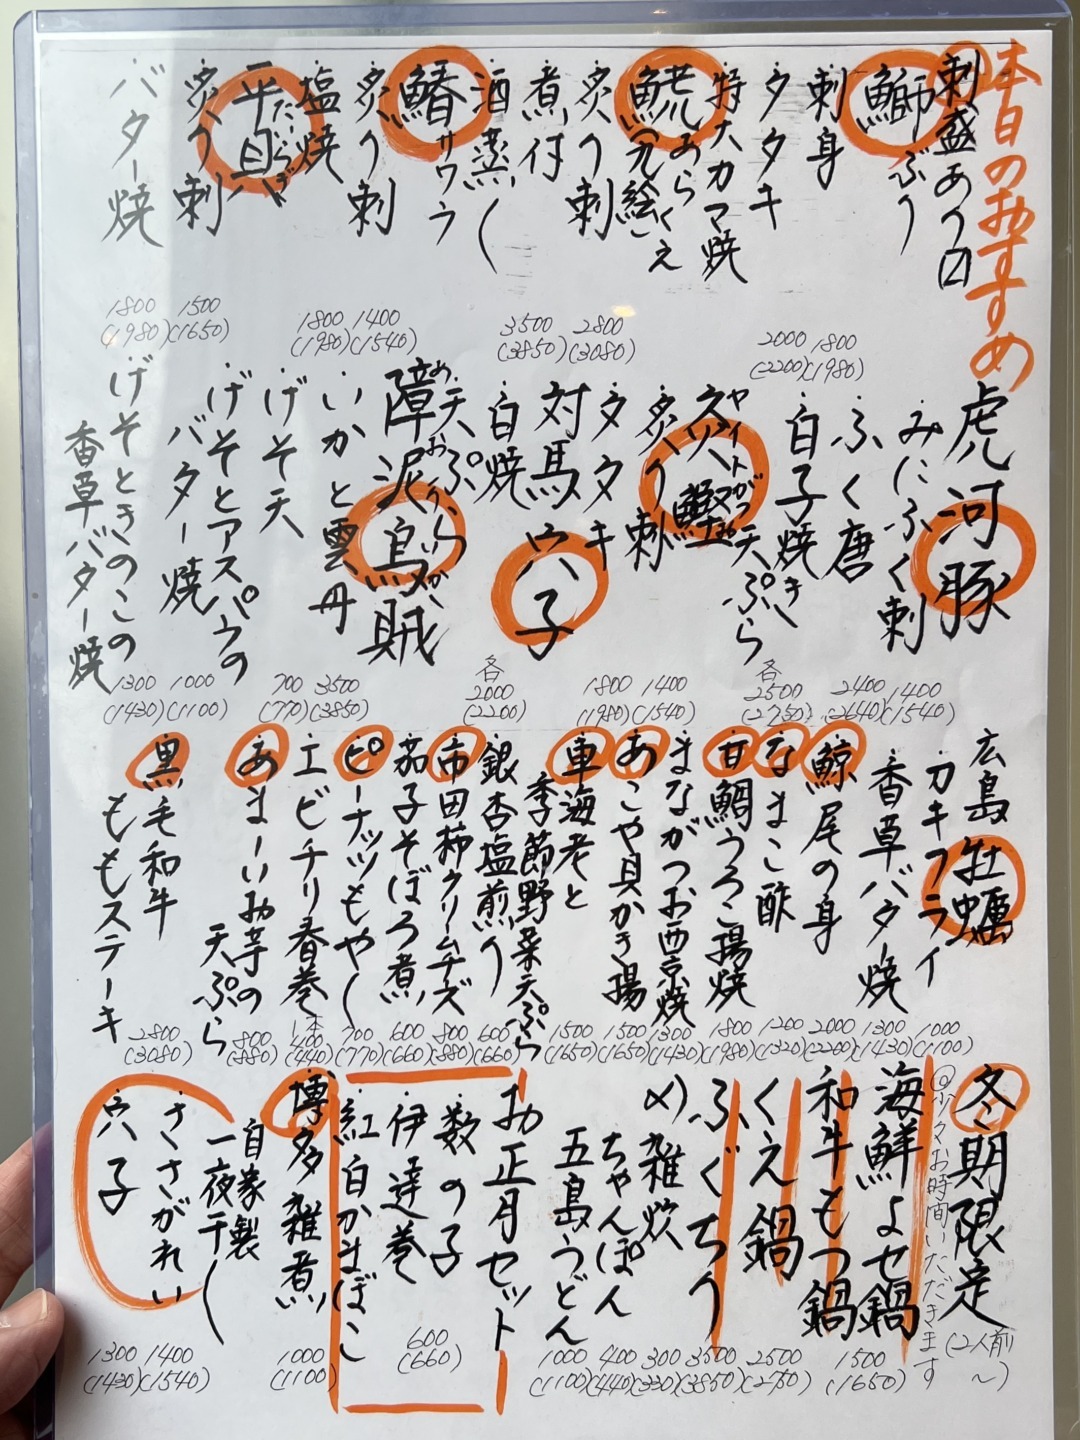 本日のおすすめ
刺盛あり〼
鰤 ぶり
刺身
タタキ
特大カマ焼
あら くえ
炙り刺
煮付
酒蒸し
鰆 サワラ
炙り刺
塩焼
平目
炙り刺
バター焼
1800
(1980)
2000
(2200)
2800
(3080)
3500
(3850)
1400
(1540)
1800
(1980)
1500
(1650)
1800
(1980)
虎河豚
みにふく刺
ふく唐
白子焼き
天ぷら
ヤイトがつお
炙り刺
タタキ
対馬穴子
白焼
天ぷら
障泥烏賊
いかと雲丹
げそ天
げそとアスパラの
バター焼
げそときのこの
香草バター焼
1400
(1540)
2400
(2640)
各
2500
(2750)
1400
(1540)
1800
(1980)
各
2000
(2200)
3500
(3850)
700
(770)
1000
(1100)
1300
(1430)
広島牡蠣
カキフライ
香草バター焼
鯨尾の身
なまこ酢
甘鯛うろこ揚焼
まながつお西京焼
あこや貝かき揚
車海老と
季節野菜天ぷら
銀杏塩煎り
市田柿クリームチーズ
茄子そぼろ煮
ピーナッツもやし
エビチリ春巻
あまーいお芋の
天ぷら
黒毛和牛
ももステーキ
1000
(1100)
1300
(1430)
2000
(2200)
1200
(1320)
1800
(1980)
1300
(1430)
1500
(1650)
1500
(1650)
600
(660)
800
(880)
600
(660)
700
(770)
1本
400
(440)
800
(880)
2800
(3080)
冬期限定
(2人前〜)
◎少々お時間いただきます
海鮮よせ鍋
和牛もつ鍋
くえ鍋
ふぐちり
〆)雑炊
ちゃんぽん
五島うどん
お正月セット
数の子
伊達巻
紅白かまぼこ
博多雑煮
自家製
一夜干し
ささがれい
穴子
1500
(1650)
2500
(2750)
3500
(3850)
300
(330)
400
(440)
1000
(1100)
600
(660)
1000
(1100)
1400
(1540)
1300
(1430)